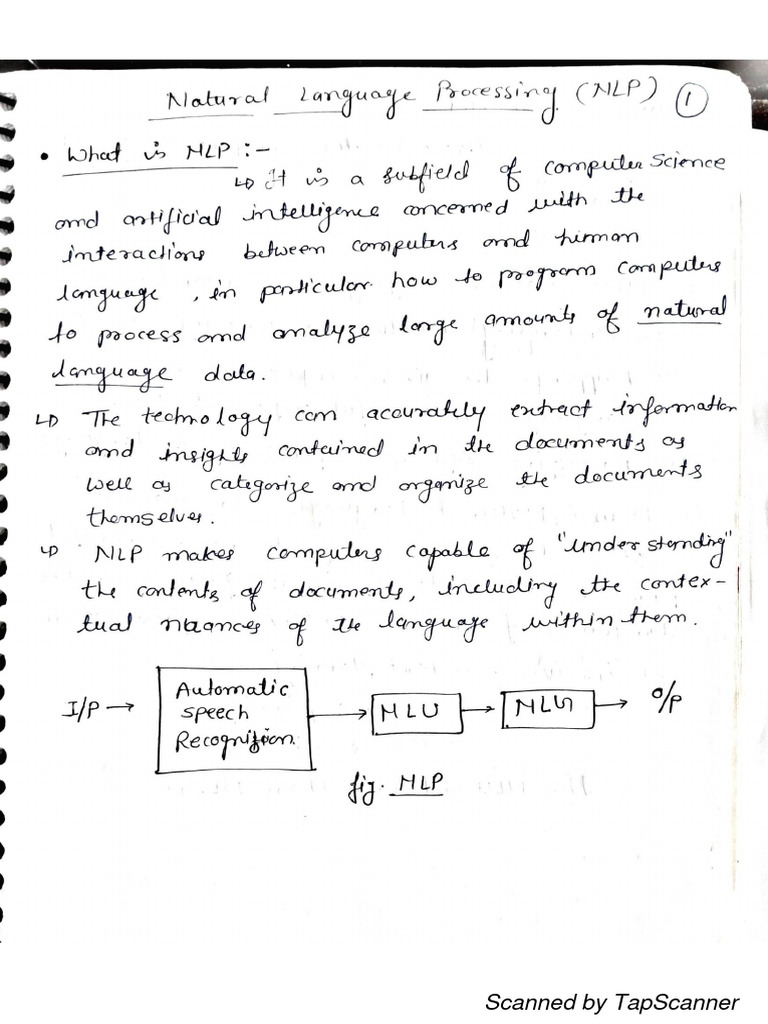 Natural Language Processing (NLP) 1
• What is NLP :-
↳ It is a subfield of computer science
and artificial intelligence concerned with the
interactions between computers and human
language, in particular how to program computers
to process and analyze large amounts of natural
language data.
↳ The technology can accurately extract information
and insights contained in the documents as
well as categorize and organize the documents
themselves.
↳ NLP makes computers capable of "understanding"
the contents of documents, including the contex-
tual nuances of the language within them.
I/P → Automatic
speech
Recognition → NLU → NLG → O/P
fig. NLP
Scanned by TapScanner